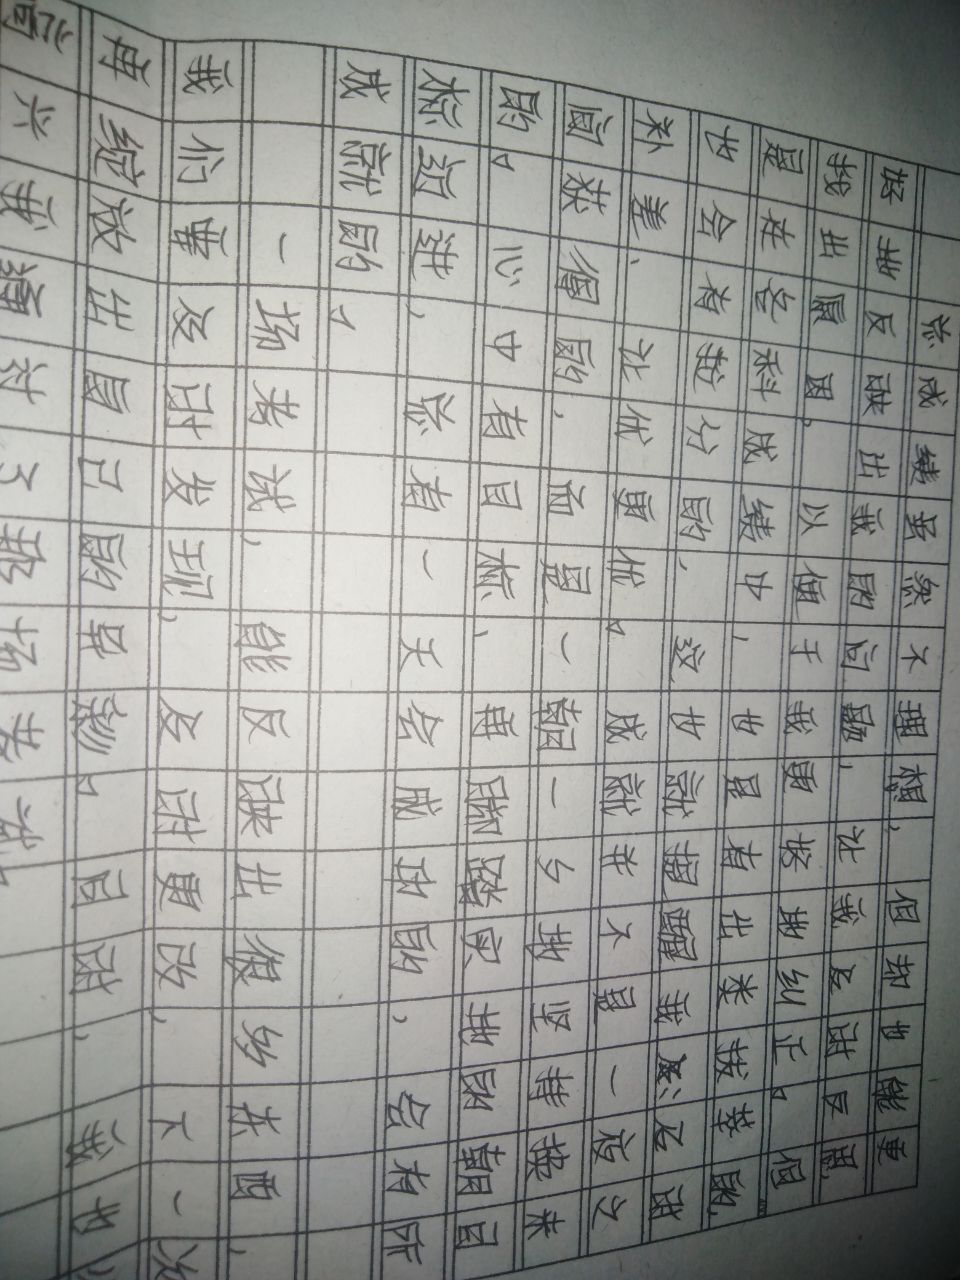 总成绩虽然不理想，但却也能更
好地反映出我的问题，让我及时反思，
找出原因，以便于我更好地纠正。但
是在各科成绩中，也是有出来拔萃的，
也会有拉分的，这也就提醒我要及时
补差、让优更优。成就并不是一夜之
间获得的，而是一朝一夕地坚持换来
的。心中有目标，再脚踏实地的朝目
标迈进，总有一天会成功的，会有所
成就的，
一场考试，能反映出很多东西，
我们要及时发现，及时更改，下一次
再绽放出自己的异彩。同时，我也
当我面对了那场考试